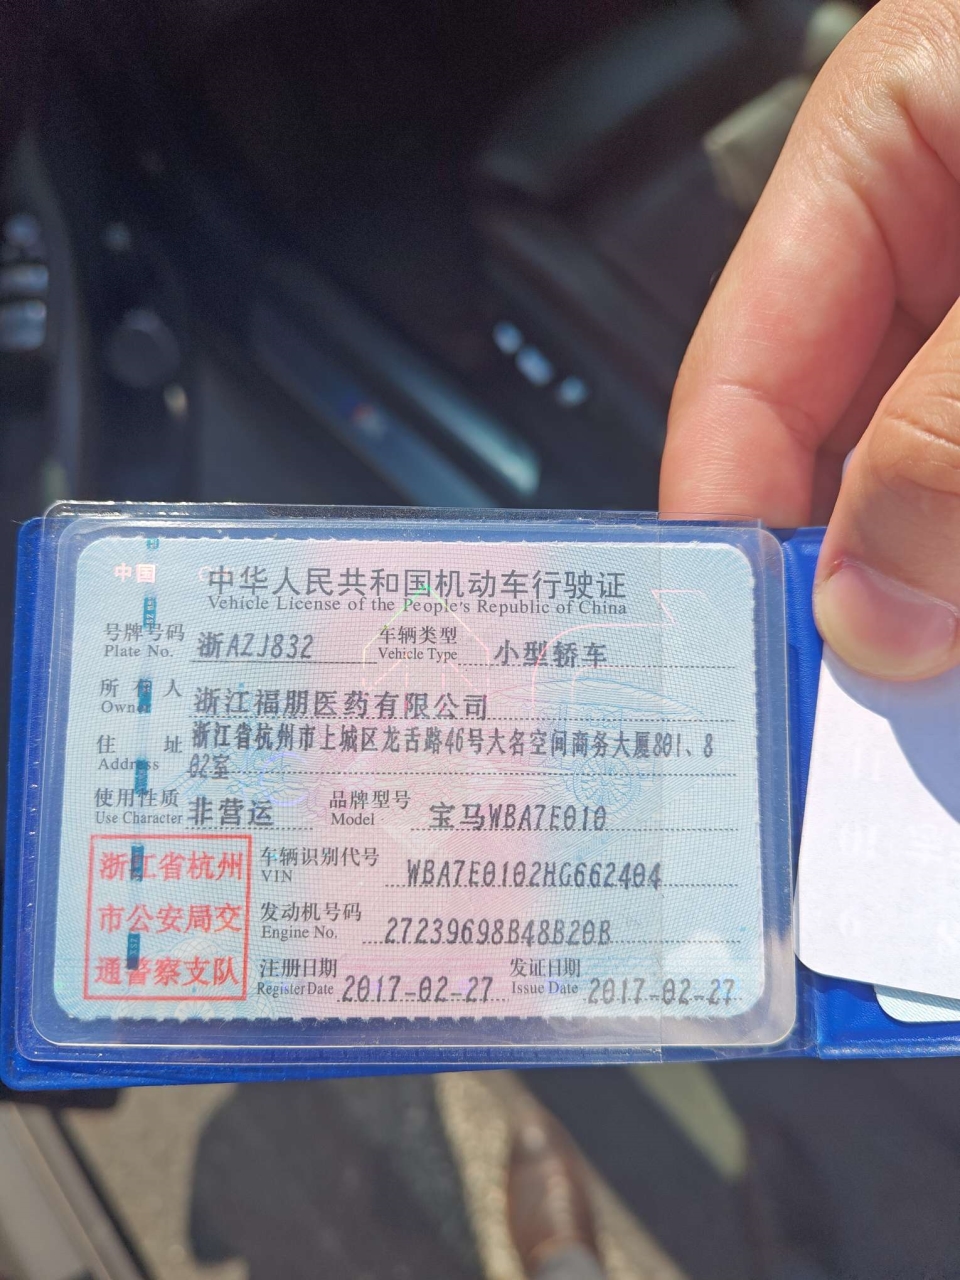 中国
中华人民共和国机动车行驶证
Vehicle License of the People's Republic of China
号牌号码 浙AZJ832 车辆类型 小型轿车
Plate No. Vehicle Type
所有人 浙江福朋医药有限公司
Owner
住址 浙江省杭州市上城区龙舌路46号大名空间商务大厦801、8
Address 02室
使用性质 非营运 品牌型号 宝马WBA7E010
Use Character Model
浙江省杭州 车辆识别代号 WBA7E0102HG662404
VIN
市公安局交 发动机号码 27239698B48B20B
Engine No.
通警察支队 注册日期 2017-02-27 发证日期 2017-02-27
Register Date Issue Date